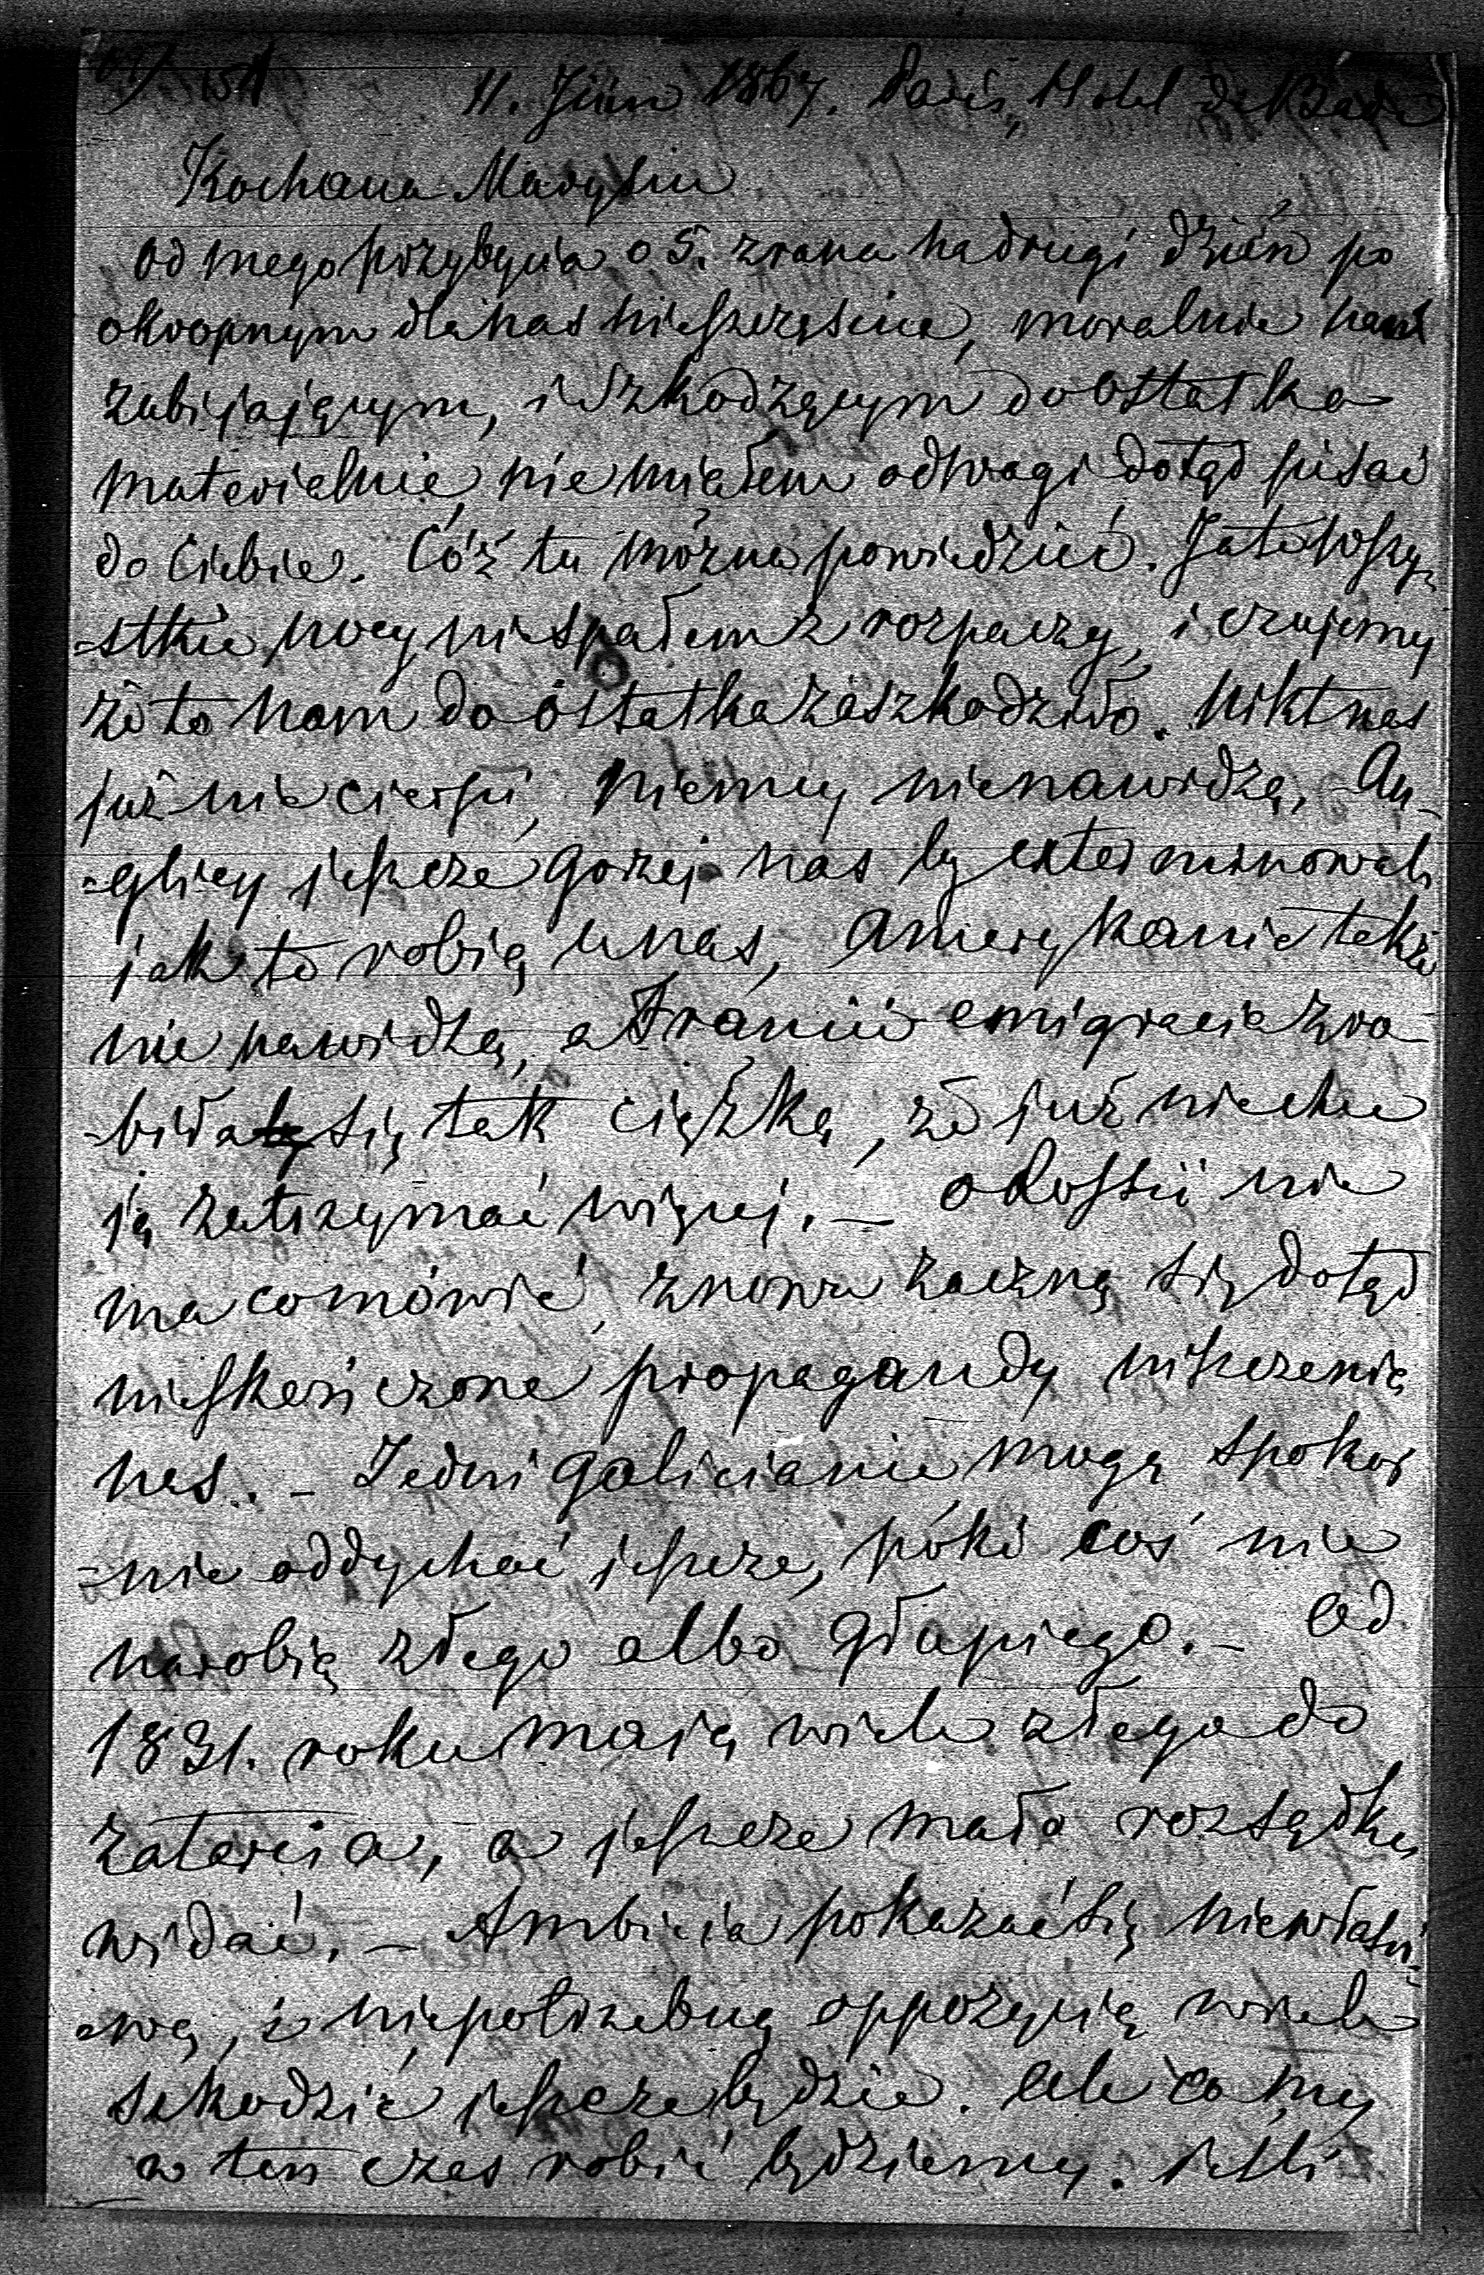 11. Juin 1867. Paris, Hotel de Bade
Kochana Marysiu
od mego przybycia o 5. zrana na drugi dzień po
okropnym dla nas nieszczęściu, moralnie nas
zabijającym, i szkodzącym do ostatka
materielnie, nie miałem odwagi dotąd pisać
do Ciebie. Cóż tu można powiedzieć. Ja te wszy-
=stkie nocy nie spałem z rozpaczy, i czujemy
że to nam do ostatka zaszkodziło. Nikt nas
już nie cierpi, Niemcy nienawidzą, An-
=glicy jeszcze gorzej nas by exterminowali
jak to robią u nas, Amerykanie także
nie nawidzą, a Francii emigracia zro-
-biła się tak ciężką, że już nie chce
ją zatrzymać więcej. — o Rossii nie
ma co mówić, znowu zaczną się dotąd
nieskończone propagandy niszczenia
nas. — Jedni Galicianie mogą spokoj
=nie oddychać jeszcze, póki coś nie
narobią złego albo głupiego. — Od
1831. roku mają wiele złego do
zatarcia, a jeszcze mało rozsądku
widać. — Ambicia pokazać się niewłaści-
=wą, i niepotrzebną oppozycią wiele
szkodzić jeszcze będzie. Ale co my
w ten czas robić będziemy. Jeśli